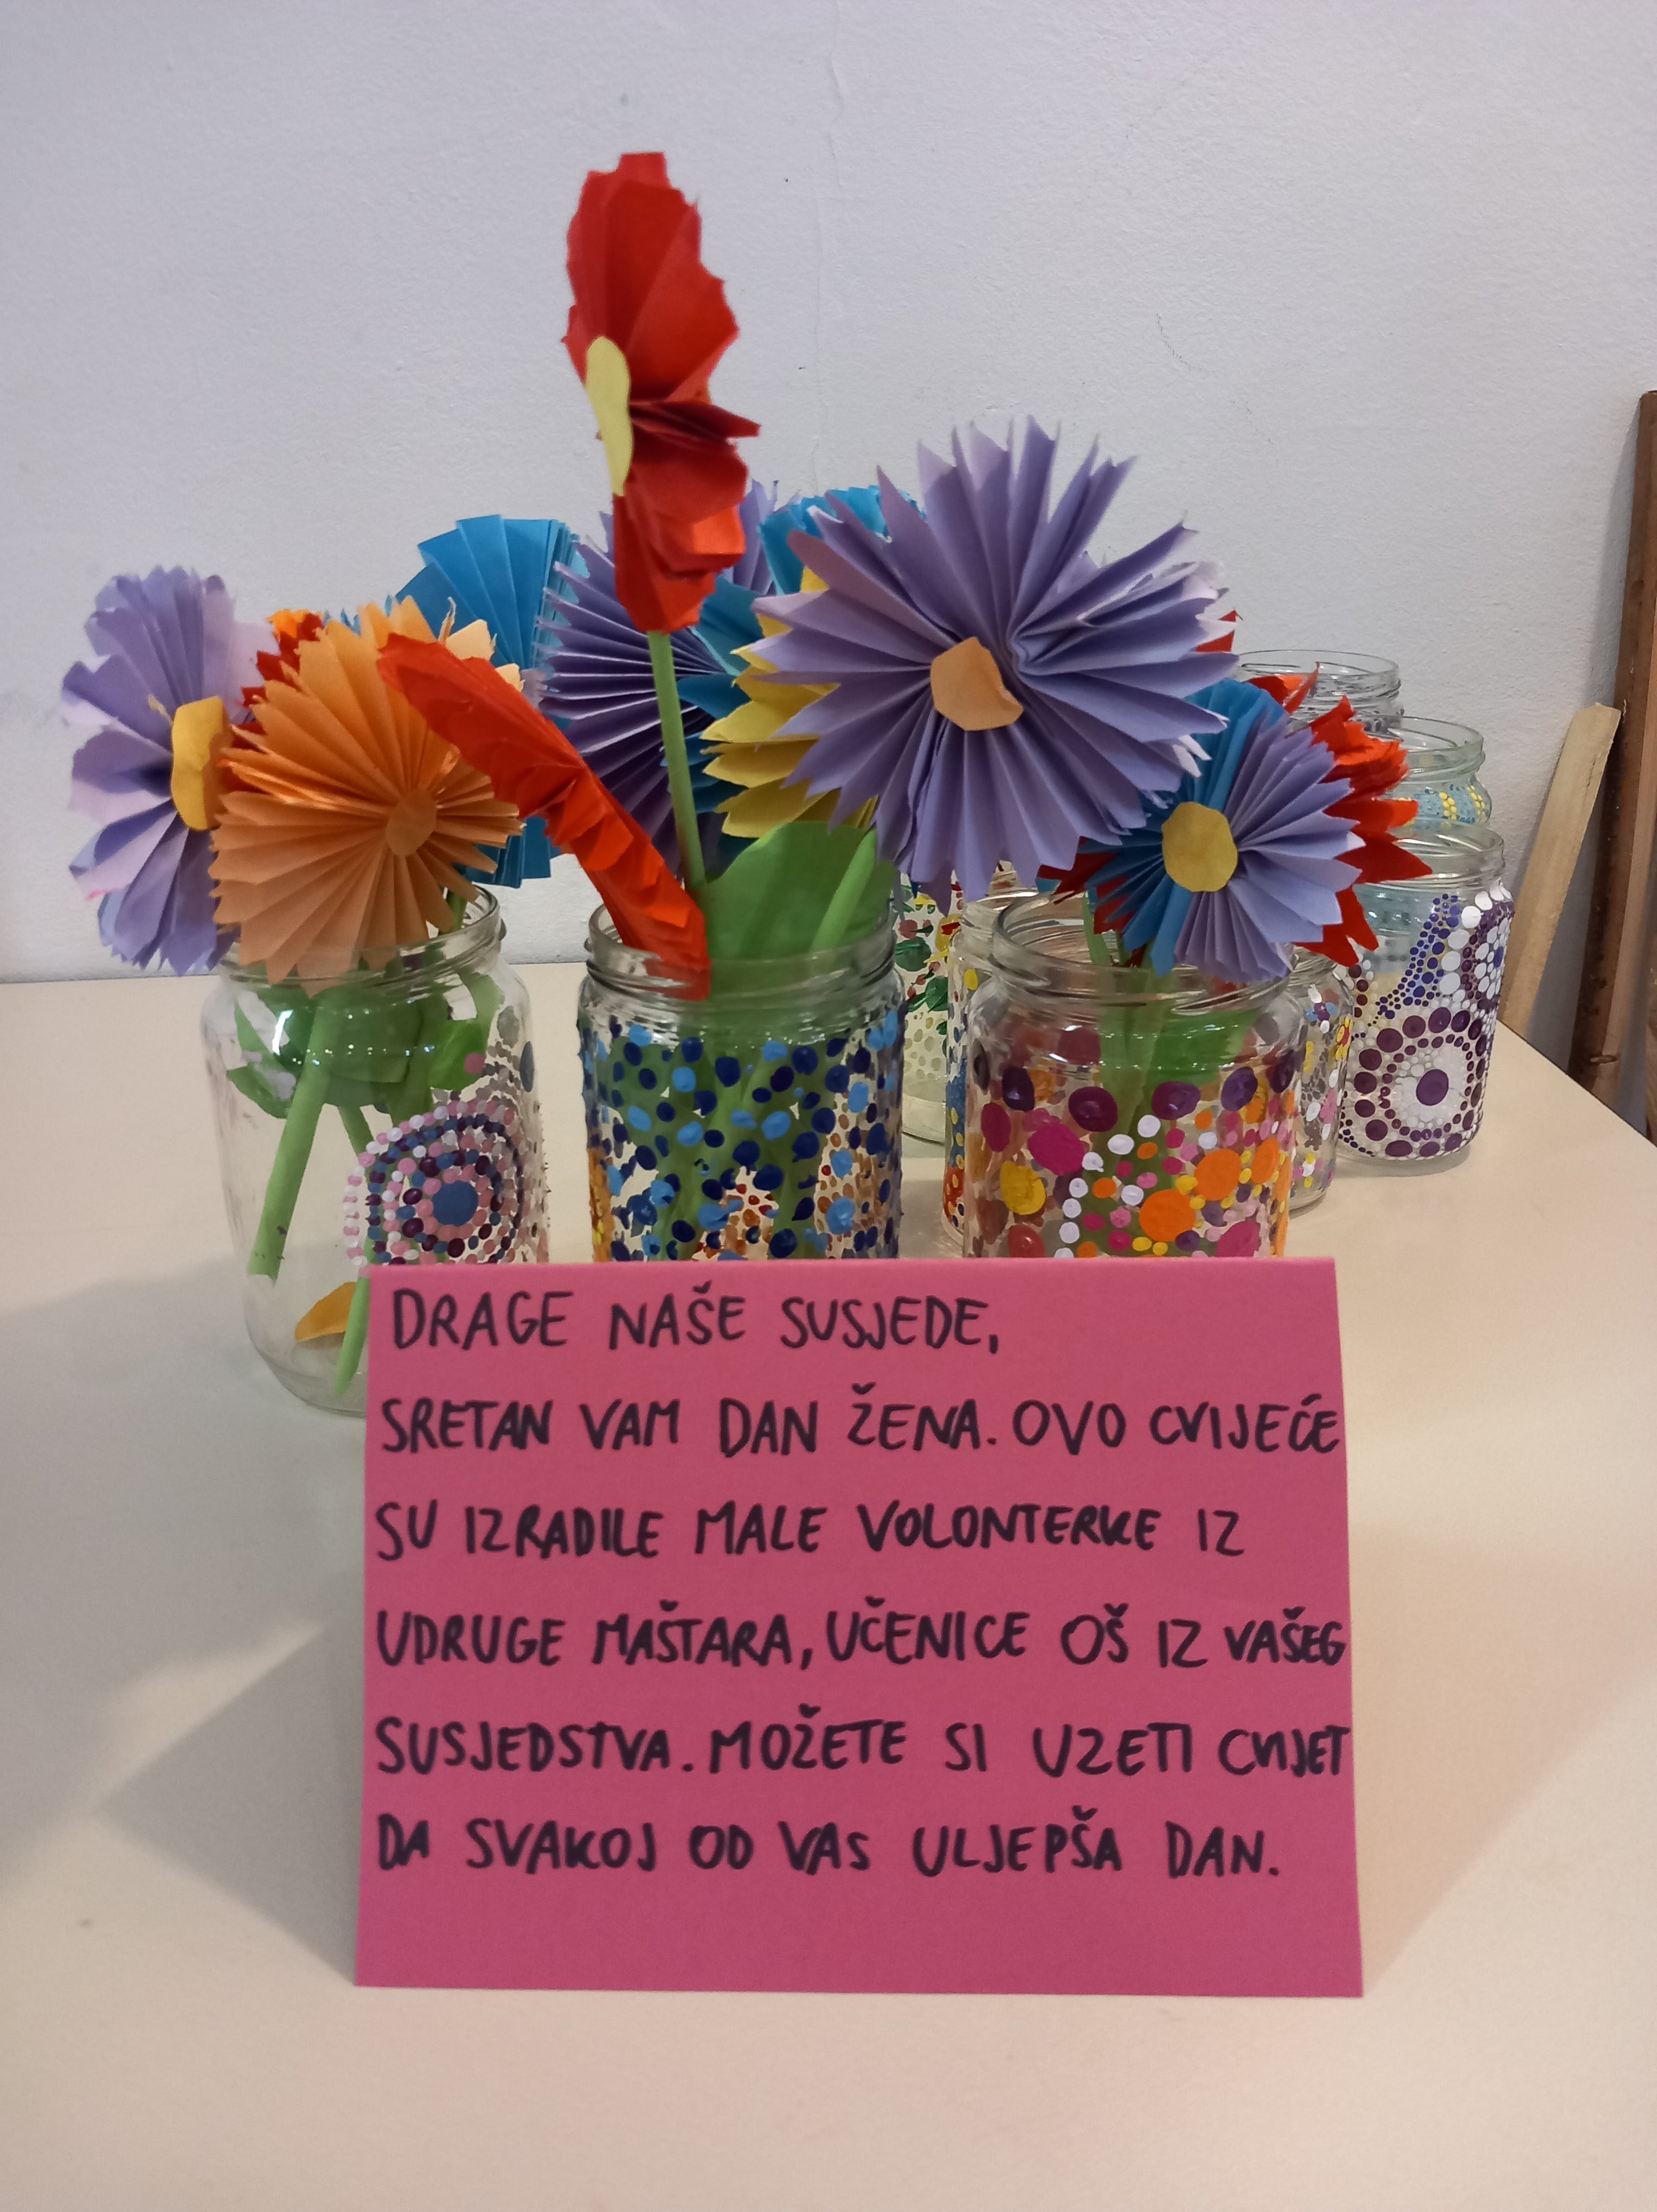 DRAGE NAŠE SUSJEDE,
SRETAN VAM DAN ŽENA. OVO CVIJEĆE
SU IZRADILE MALE VOLONTERKE IZ
UDRUGE MAŠTARA, UČENICE OŠ IZ VAŠEG
SUSJEDSTVA. MOŽETE SI UZETI CVIJET
DA SVAKOJ OD VAS ULJEPŠA DAN.